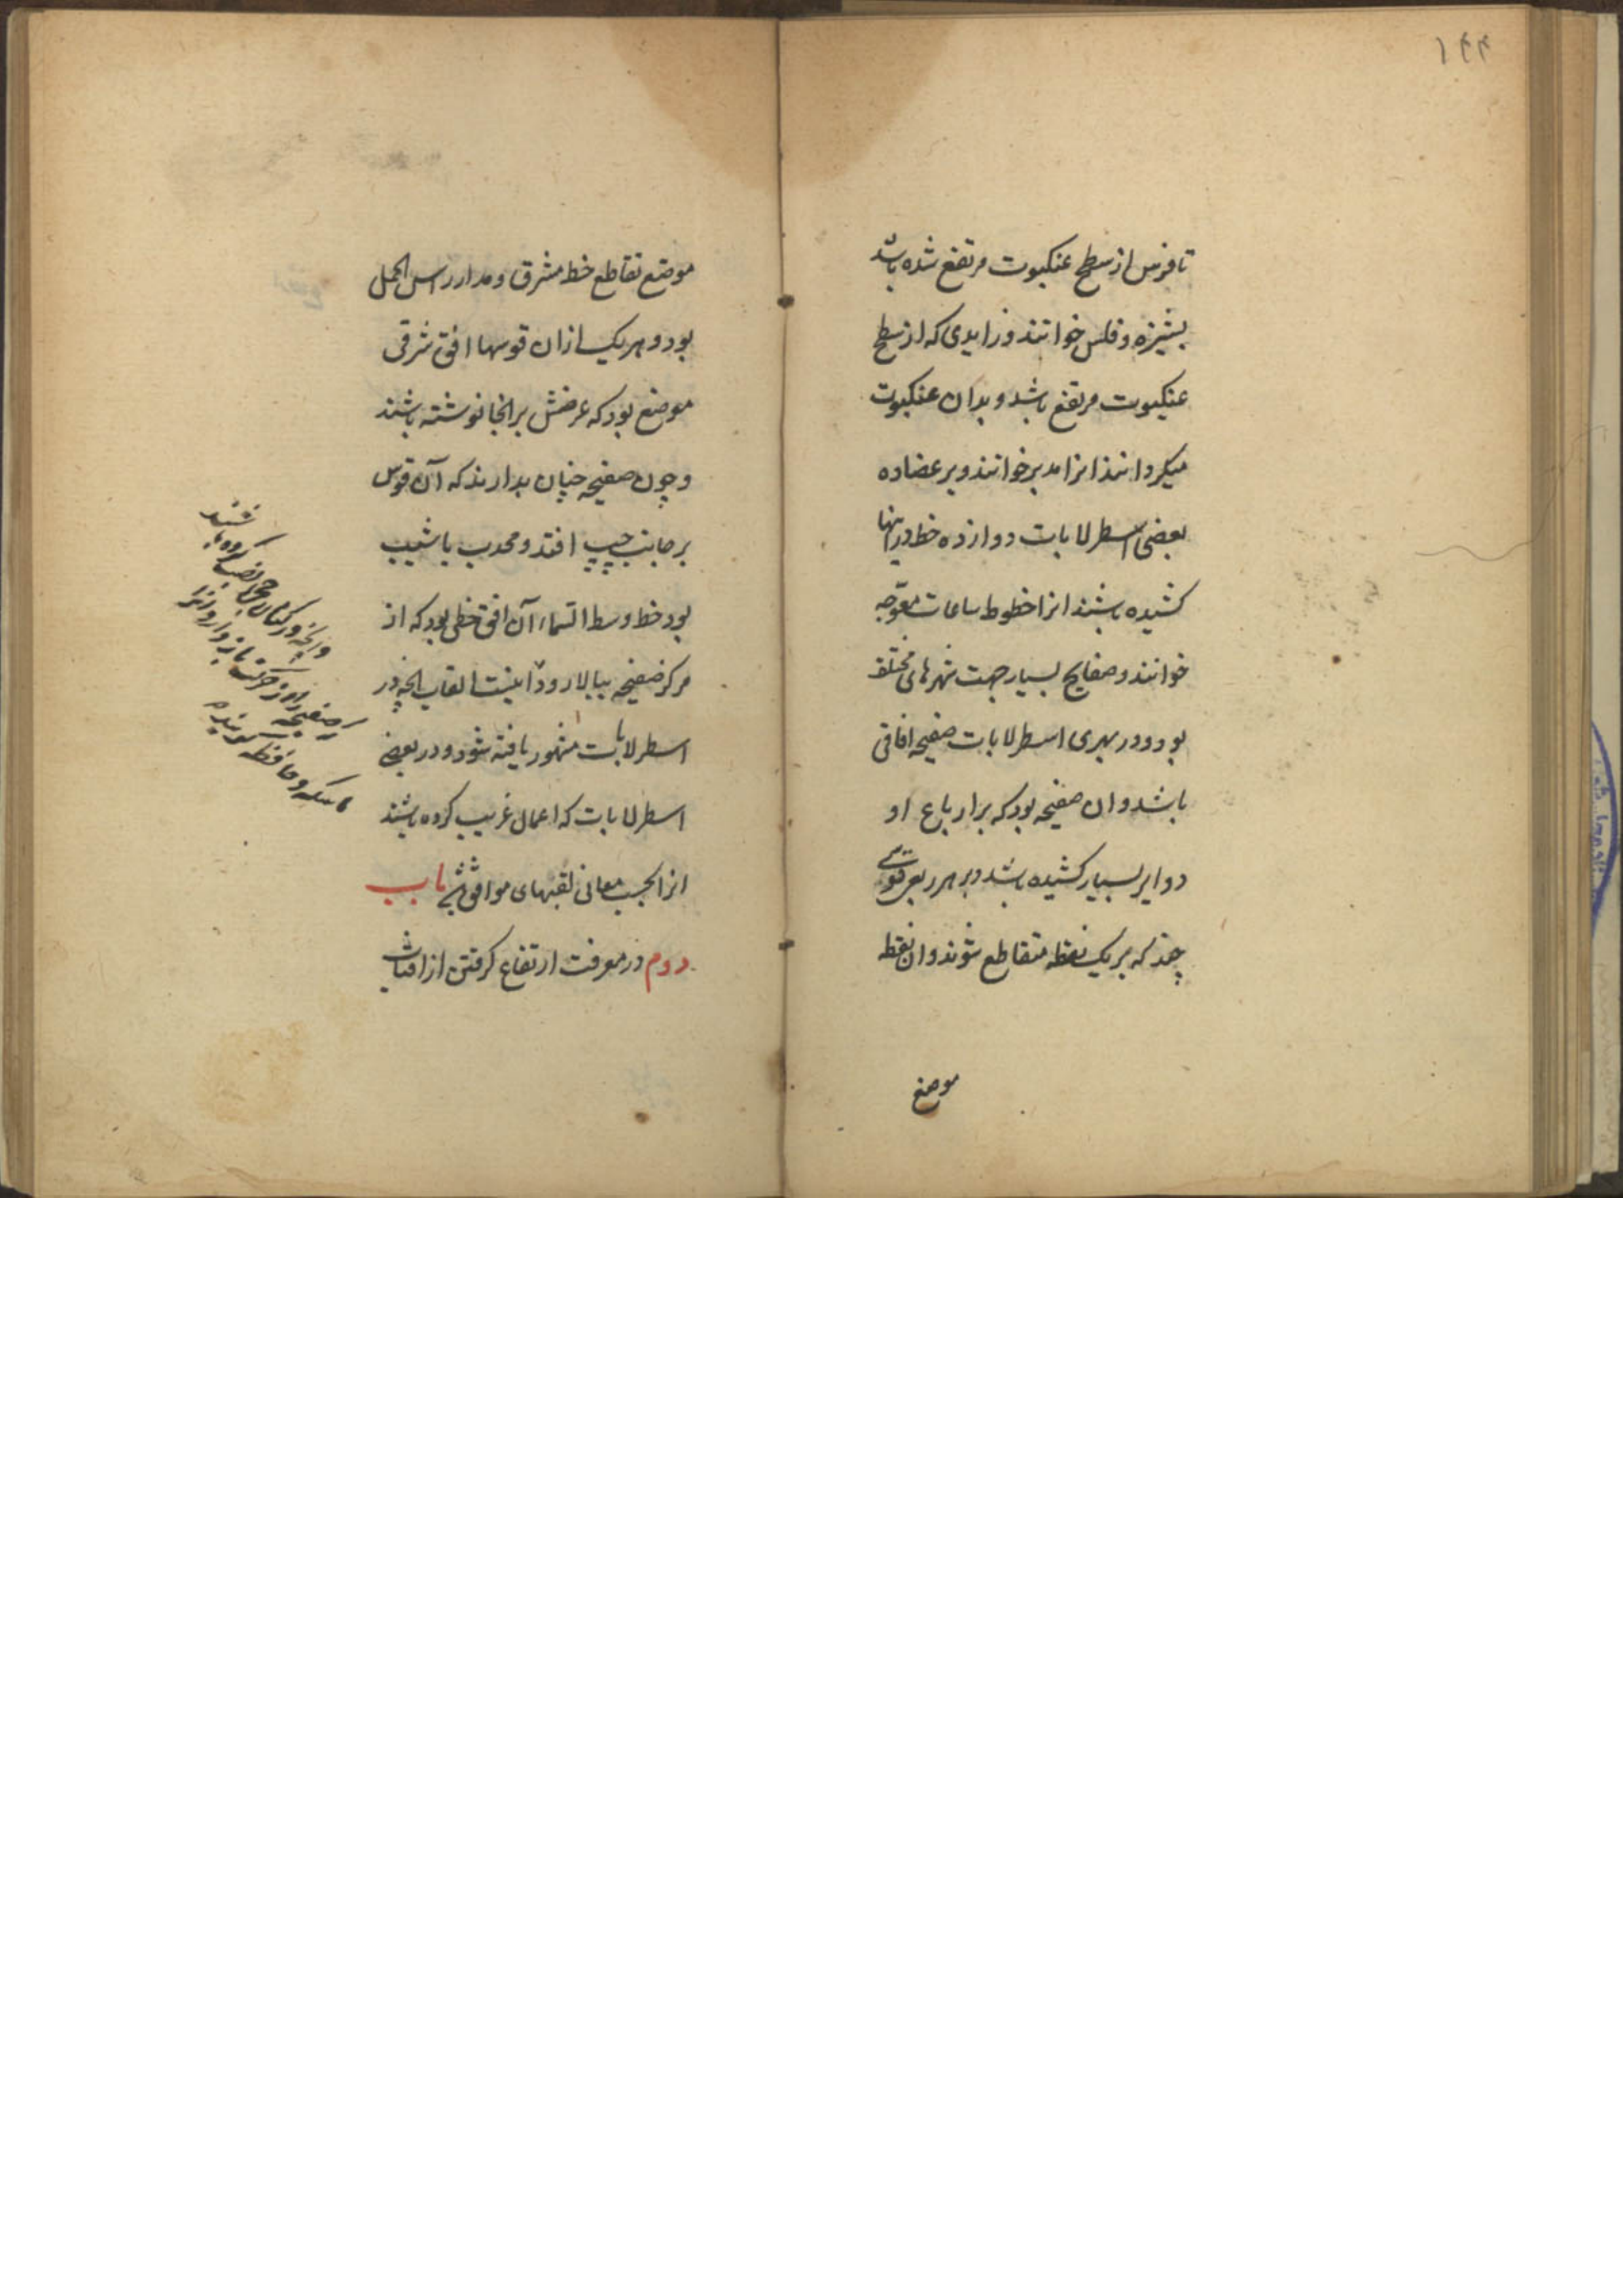 ۱۴۴
تا فرس از سطح عنکبوت مرتفع شده باشد
پشیزه و فلس خوانند و زایدی که از سطح
عنکبوت مرتفع باشد و بدان عنکبوت
میکردانند انرا مدیر خوانند و بر عضاده
بعضی اسطرلابات دوازده خط در انها
کشیده باشند انرا خطوط ساعات معوّجه
خوانند و صفایح بسیار جهت شهرهای مختلف
بود و در بهری اسطرلابات صفیحه افاقی
باشد و ان صفیحه بود که بر ارباع او
دوایر بسیار کشیده باشد و بر هر ربعی قوسی
چند که بر یک نقطه متقاطع شوند و ان نقطه
موضع
موضع تقاطع خط مشرق و مدار راس الحمل
بود و هر یک از ان قوسها افق شرقی
موضع بود که عرضش بر انجا نوشته باشند
و چون صفیحه چنان بدارند که آن قوس
بر جانب چپ افتد و محدب با شیب
بود خط وسط السماء آن افق خطی بود که از
مرکز صفیحه ببالا رود اینست القاب انچه در
اسطرلابات مشهور یافته شود و در بعضی
اسطرلابات که اعمال غریب کرده باشند
انرا بحسب معانی لقبهای موافق باب
دوم در معرفت ارتفاع کرفتن از افتاب
وانچه در کنار
صفیحه را از حرکت باز دارد انرا
ماسکه و محافظه کویند